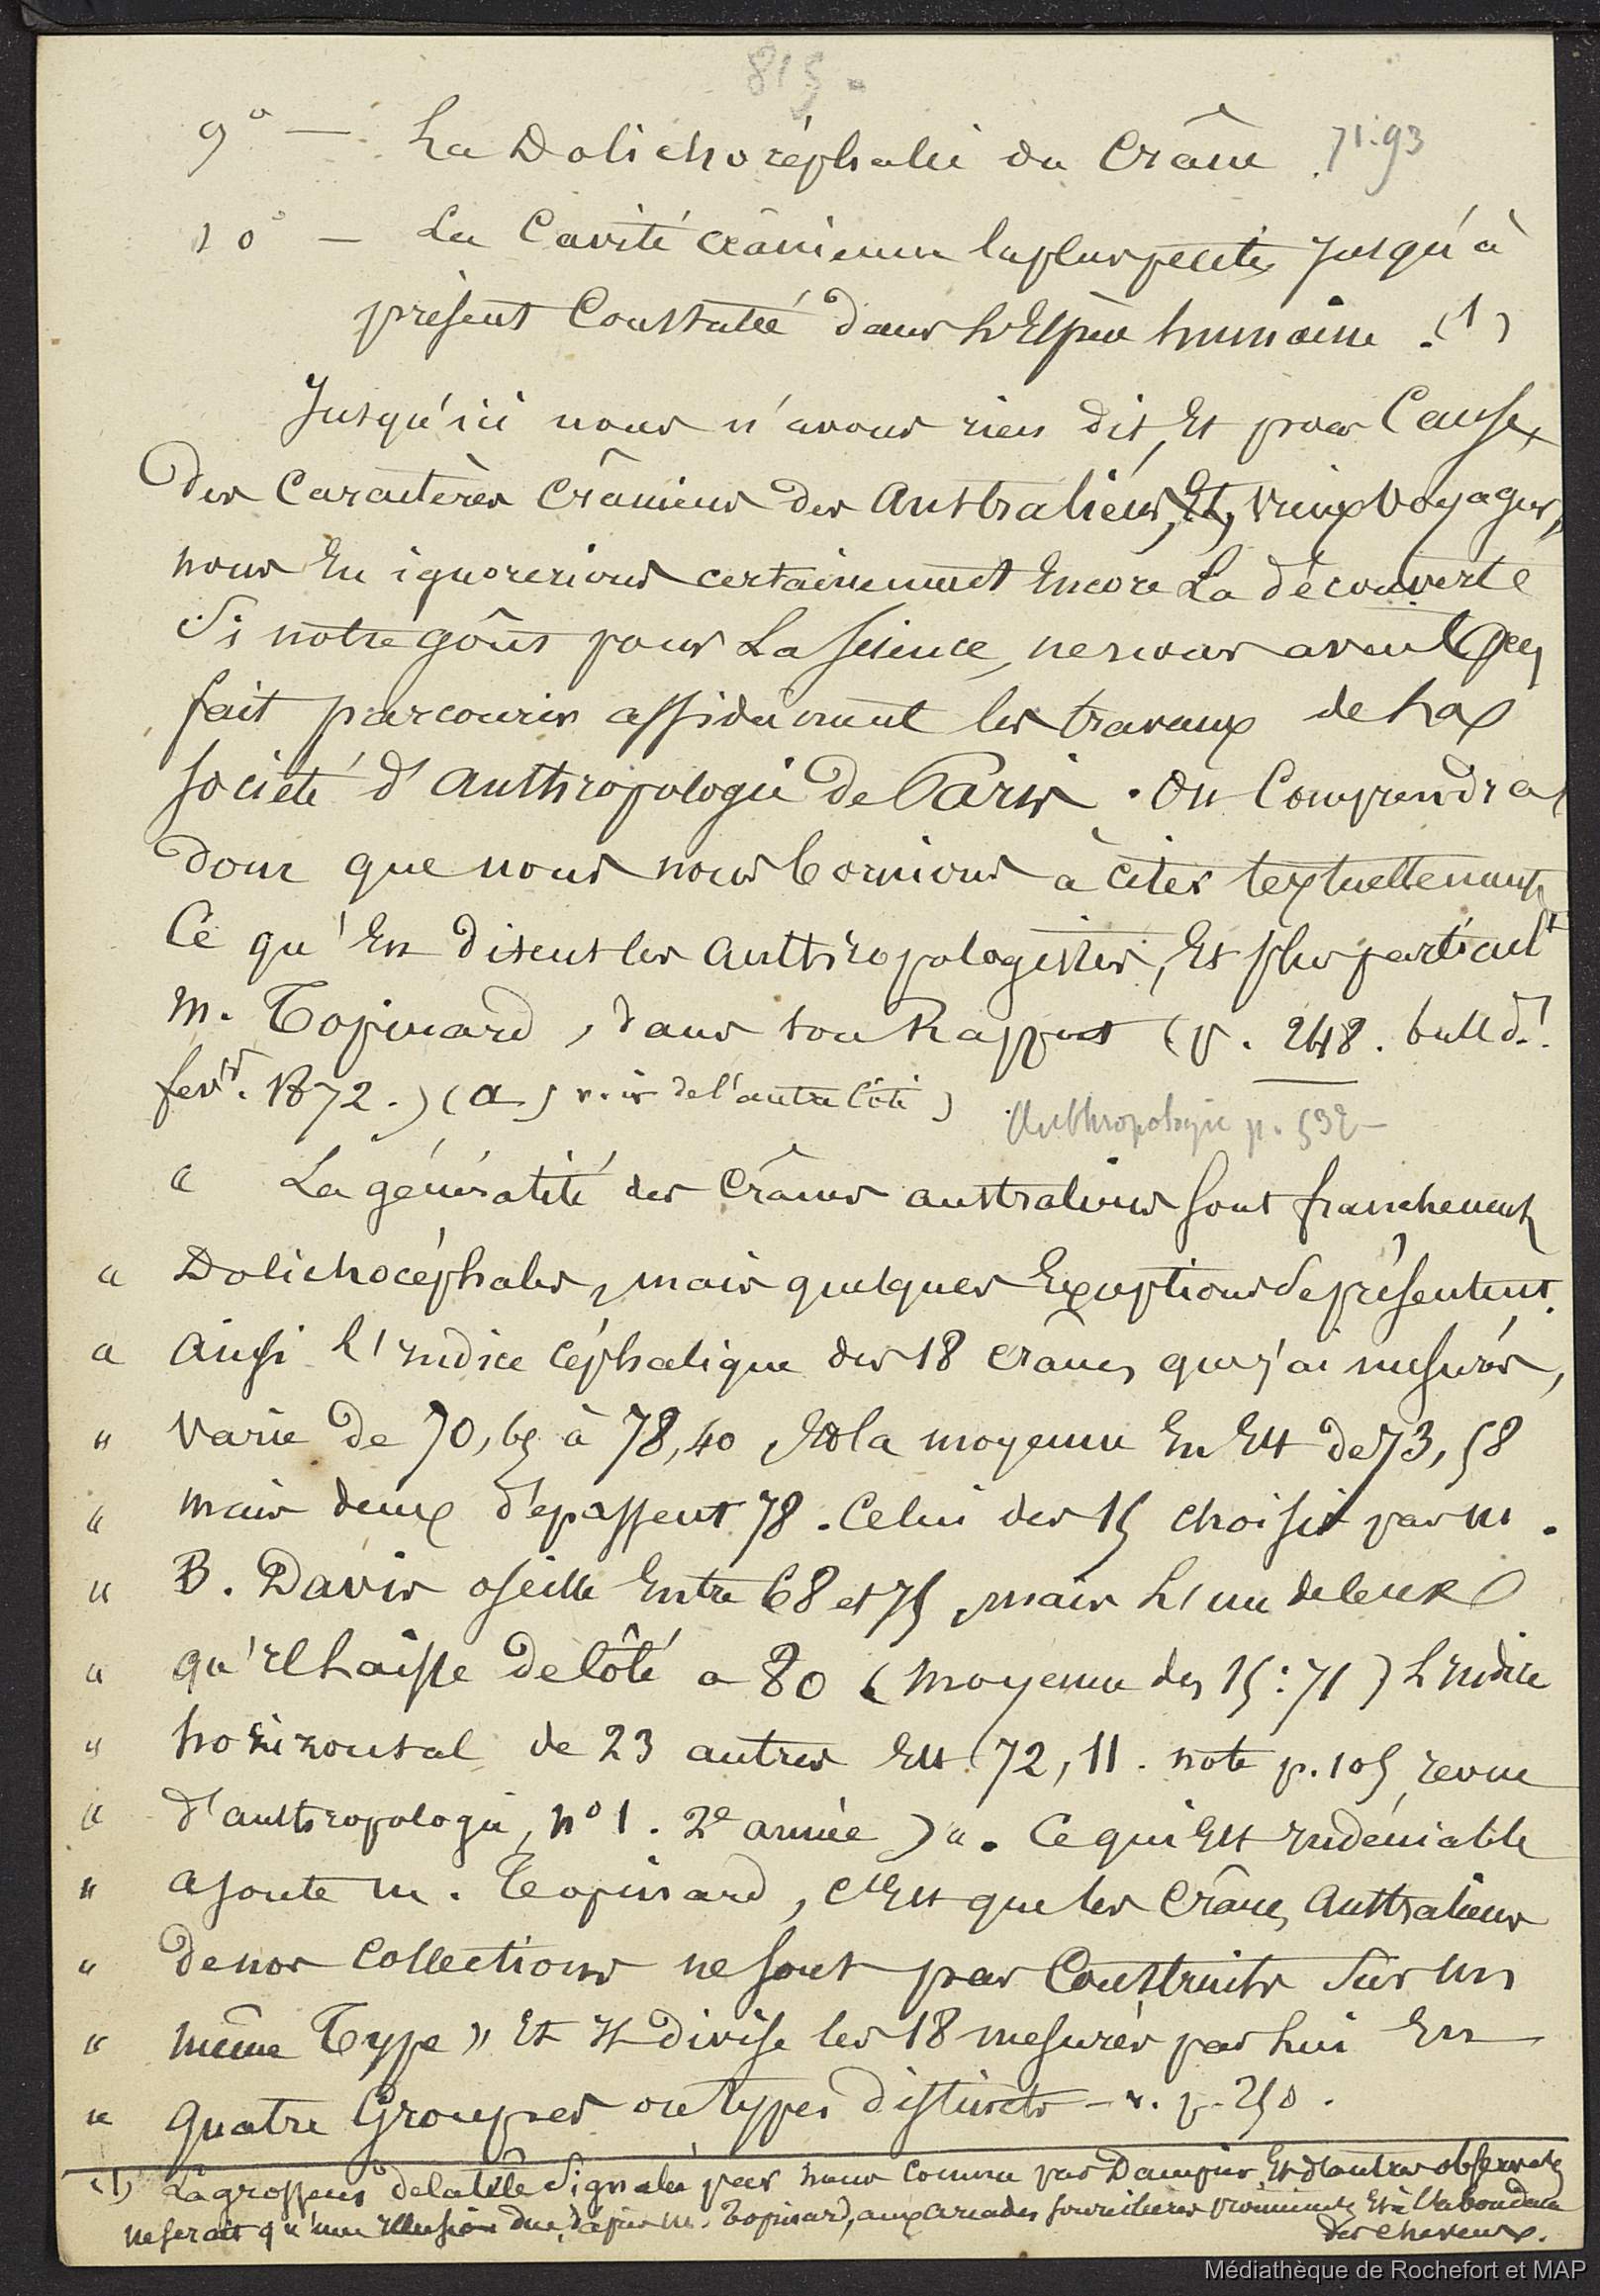 815 -
9° — La Dolichocéphalie du Crâne . 71.93
10° — La Cavité crânienne la plus petite jusqu'à
présent Constatée dans l'Espèce humaine . (1)
Jusqu'ici nous n'avons rien dit, Et pour Cause,
Des Caractères Crâniens des Australiens, Et, vieux voyageur,
nous En ignorerions certainement Encore La découverte
Si notre goût pour La Science, ne nous avait
fait parcourir assidument les travaux de La
Société d'Anthropologie De Paris . On Comprendra
donc que nous nous bornions à citer textuellement
Ce qu'En disent les Anthropologistes, Et plus particult
M. Topinard, dans son Rapport (p. 248. bull d.!
fevr. 1872.) (a) voir de l'autre Côté)
Anthropologie p. 532
" La généralité des Crânes australiens sont franchement
" Dolichocéphales, mais quelques Exceptions se présentent.
" Ainsi L'Indice Céphalique des 18 crânes que j'ai mesurés,
" varie De 70,65 à 78,40 Et la moyenne En Est de 73,58
" mais deux dépassent 78. Celui des 15 choisis par M.
" B. Davis oscille Entre 68 et 75, mais L'un de ceux
" qu'Il Laisse De Côté a 80 (moyenne des 15 : 71) L'Indice
" horizontal de 23 autres Est 72,11. note p. 105, revue
" d'anthropologie, n° 1. 2e année )". Ce qui Est Indéniable
" ajoute M. Topinard, C'Est que les Crânes Australiens
" De nos Collections ne sont pas Construits Sur un
" même Type " Et Il divise les 18 mesurés par Lui En
" quatre Groupes ou types distincts — v. p. 250.
(1) La grosseur de la tête Signalée par nous comme par Dampier Et d'autres observatrs
ne serait qu'une Illusion due, d'après M. Topinard, aux arcades sourcilières proéminentes Et à l'abondance
des cheveux.
Médiathèque de Rochefort et MAP